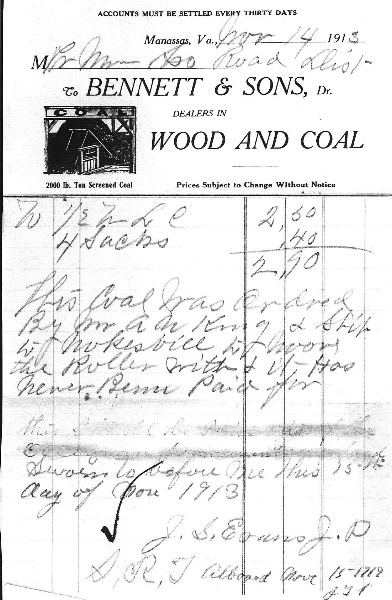 ACCOUNTS MUST BE SETTLED EVERY THIRTY DAYS
Manassas, Va., Nov 14 1913
M Road Dist
To BENNETT & SONS, Dr.
DEALERS IN
COAL
WOOD AND COAL
2000 lb. Ton Screened Coal
Prices Subject to Change Without Notice
To 1/2 2,50
4 Sacks ,40
2,90
This Coal Was Ordred
By Mr King & Ship
to Nokesvill to Move
the Roller with & it Has
Never Benn Paid for
Sworn to before Me this 15
day of Nov 1913
J. S. Evans J. P
S, R, T allowed Nov 15-1913